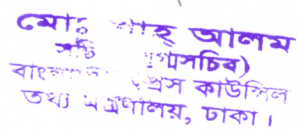 মোঃ শাহ্ আলম
সচিব (যুগ্মসচিব)
বাংলাদেশ প্রেস কাউন্সিল
তথ্য মন্ত্রণালয়, ঢাকা।